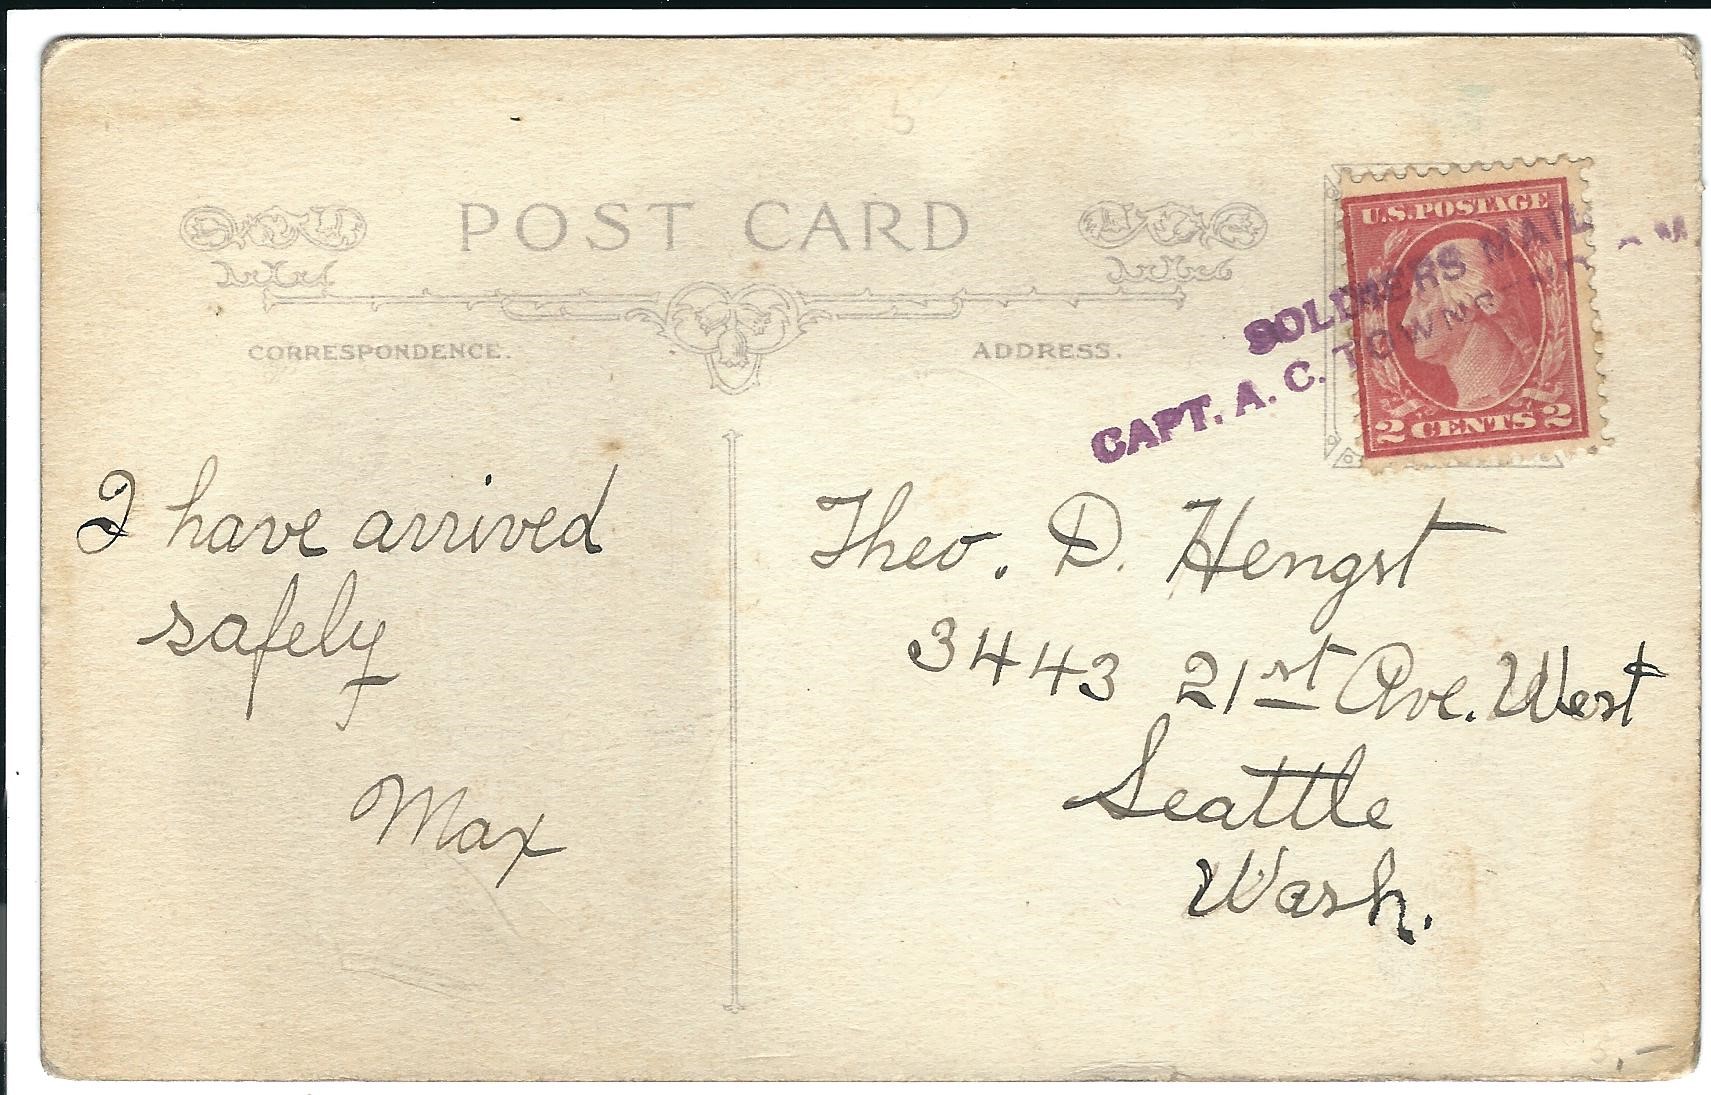 POST CARD
CORRESPONDENCE.
ADDRESS.
U.S. POSTAGE
2 CENTS 2
SOLDIERS MAIL
CAPT. A. C. TOWNSEND
I have arrived
safely
Max
Theo. D. Hengst
3443 21st Ave. West
Seattle
Wash.